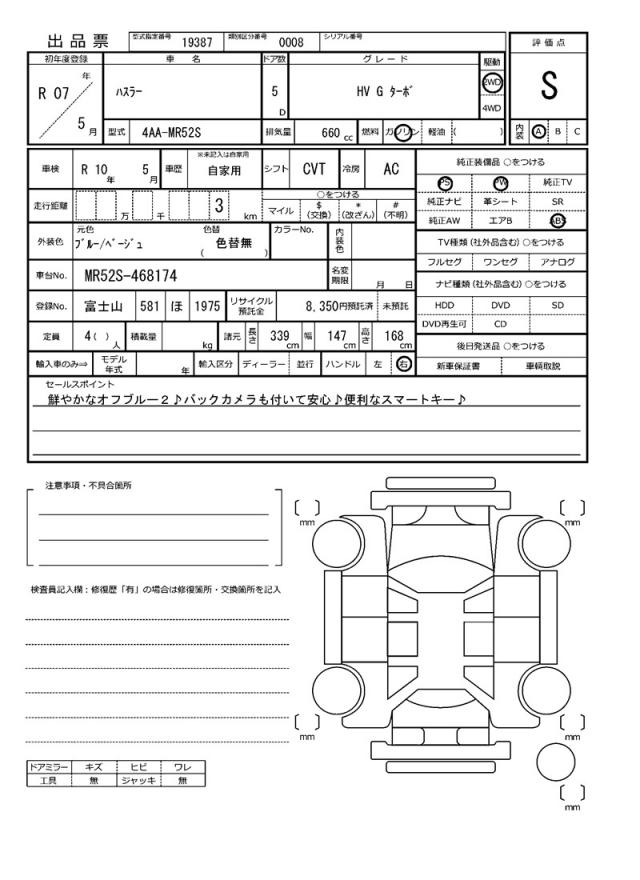 出品票 型式指定番号 19387 類別区分番号 0008 シリアル番号
評価点
S
初年度登録 車名 ドア数 グレード 駆動
R 07 年 5 月
ハスラー 5 D HV G ターボ 2WD
4WD
型式 4AA-MR52S 排気量 660 cc 燃料 ガソリン 軽油 ( )
内装 A B C
車検 R 10 年 5 月 車歴 ※未記入は自家用 自家用 シフト CVT 冷房 AC
純正装備品 ○をつける
PS PW 純正TV
純正ナビ 革シート SR
純正AW エアB ABS
走行距離 万 千 3 km
○をつける
マイル $ (交換) * (改ざん) # (不明)
外装色 元色 ブルー/ベージュ 色替 ( 色替無 ) カラーNo. 内装色
TV種類 (社外品含む) ○をつける
フルセグ ワンセグ アナログ
車台No. MR52S-468174 名変期限 月 日
ナビ種類 (社外品含む) ○をつける
登録No. 富士山 581 ほ 1975 リサイクル預託金 8,350円預託済 未預託
HDD DVD SD
DVD再生可 CD
定員 4 ( ) 人 積載量 kg 諸元 長さ 339 cm 幅 147 cm 高さ 168 cm
後日発送品 ○をつける
輸入車のみ⇒ モデル年式 年 輸入区分 ディーラー 並行 ハンドル 左 右
新車保証書 車輌取説
セールスポイント
鮮やかなオフブルー２♪バックカメラも付いて安心♪便利なスマートキー♪
注意事項・不具合箇所
mm mm
検査員記入欄：修復歴「有」の場合は修復箇所・交換箇所を記入
mm mm
ドアミラー キズ ヒビ ワレ
工具 無 ジャッキ 無
mm